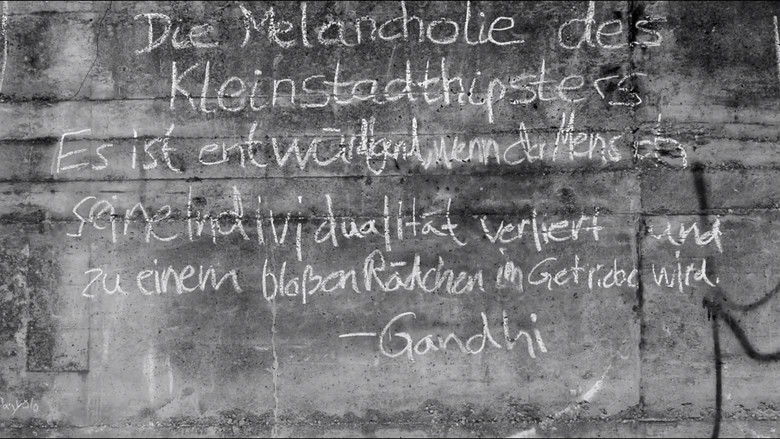 Die Melancholie des
Kleinstadthipsters
Es ist entwürdigend, wenn der Mensch
seine Individualität verliert und
zu einem bloßen Rädchen im Getriebe wird.
-Gandhi